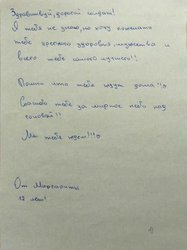 Здравствуй, дорогой солдат!
Я тебя не знаю, но хочу пожелать
тебе крепкого здоровья, мужества и
всего тебе самого лучшего!!
Помни что тебя ждут дома!!
Спасибо тебе за мирное небо над
головой!!
Мы тебя ждём!!!
От Маргариты
12 лет!